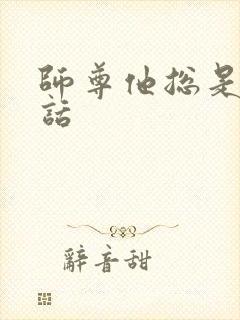 師尊他總是
話
辭音甜